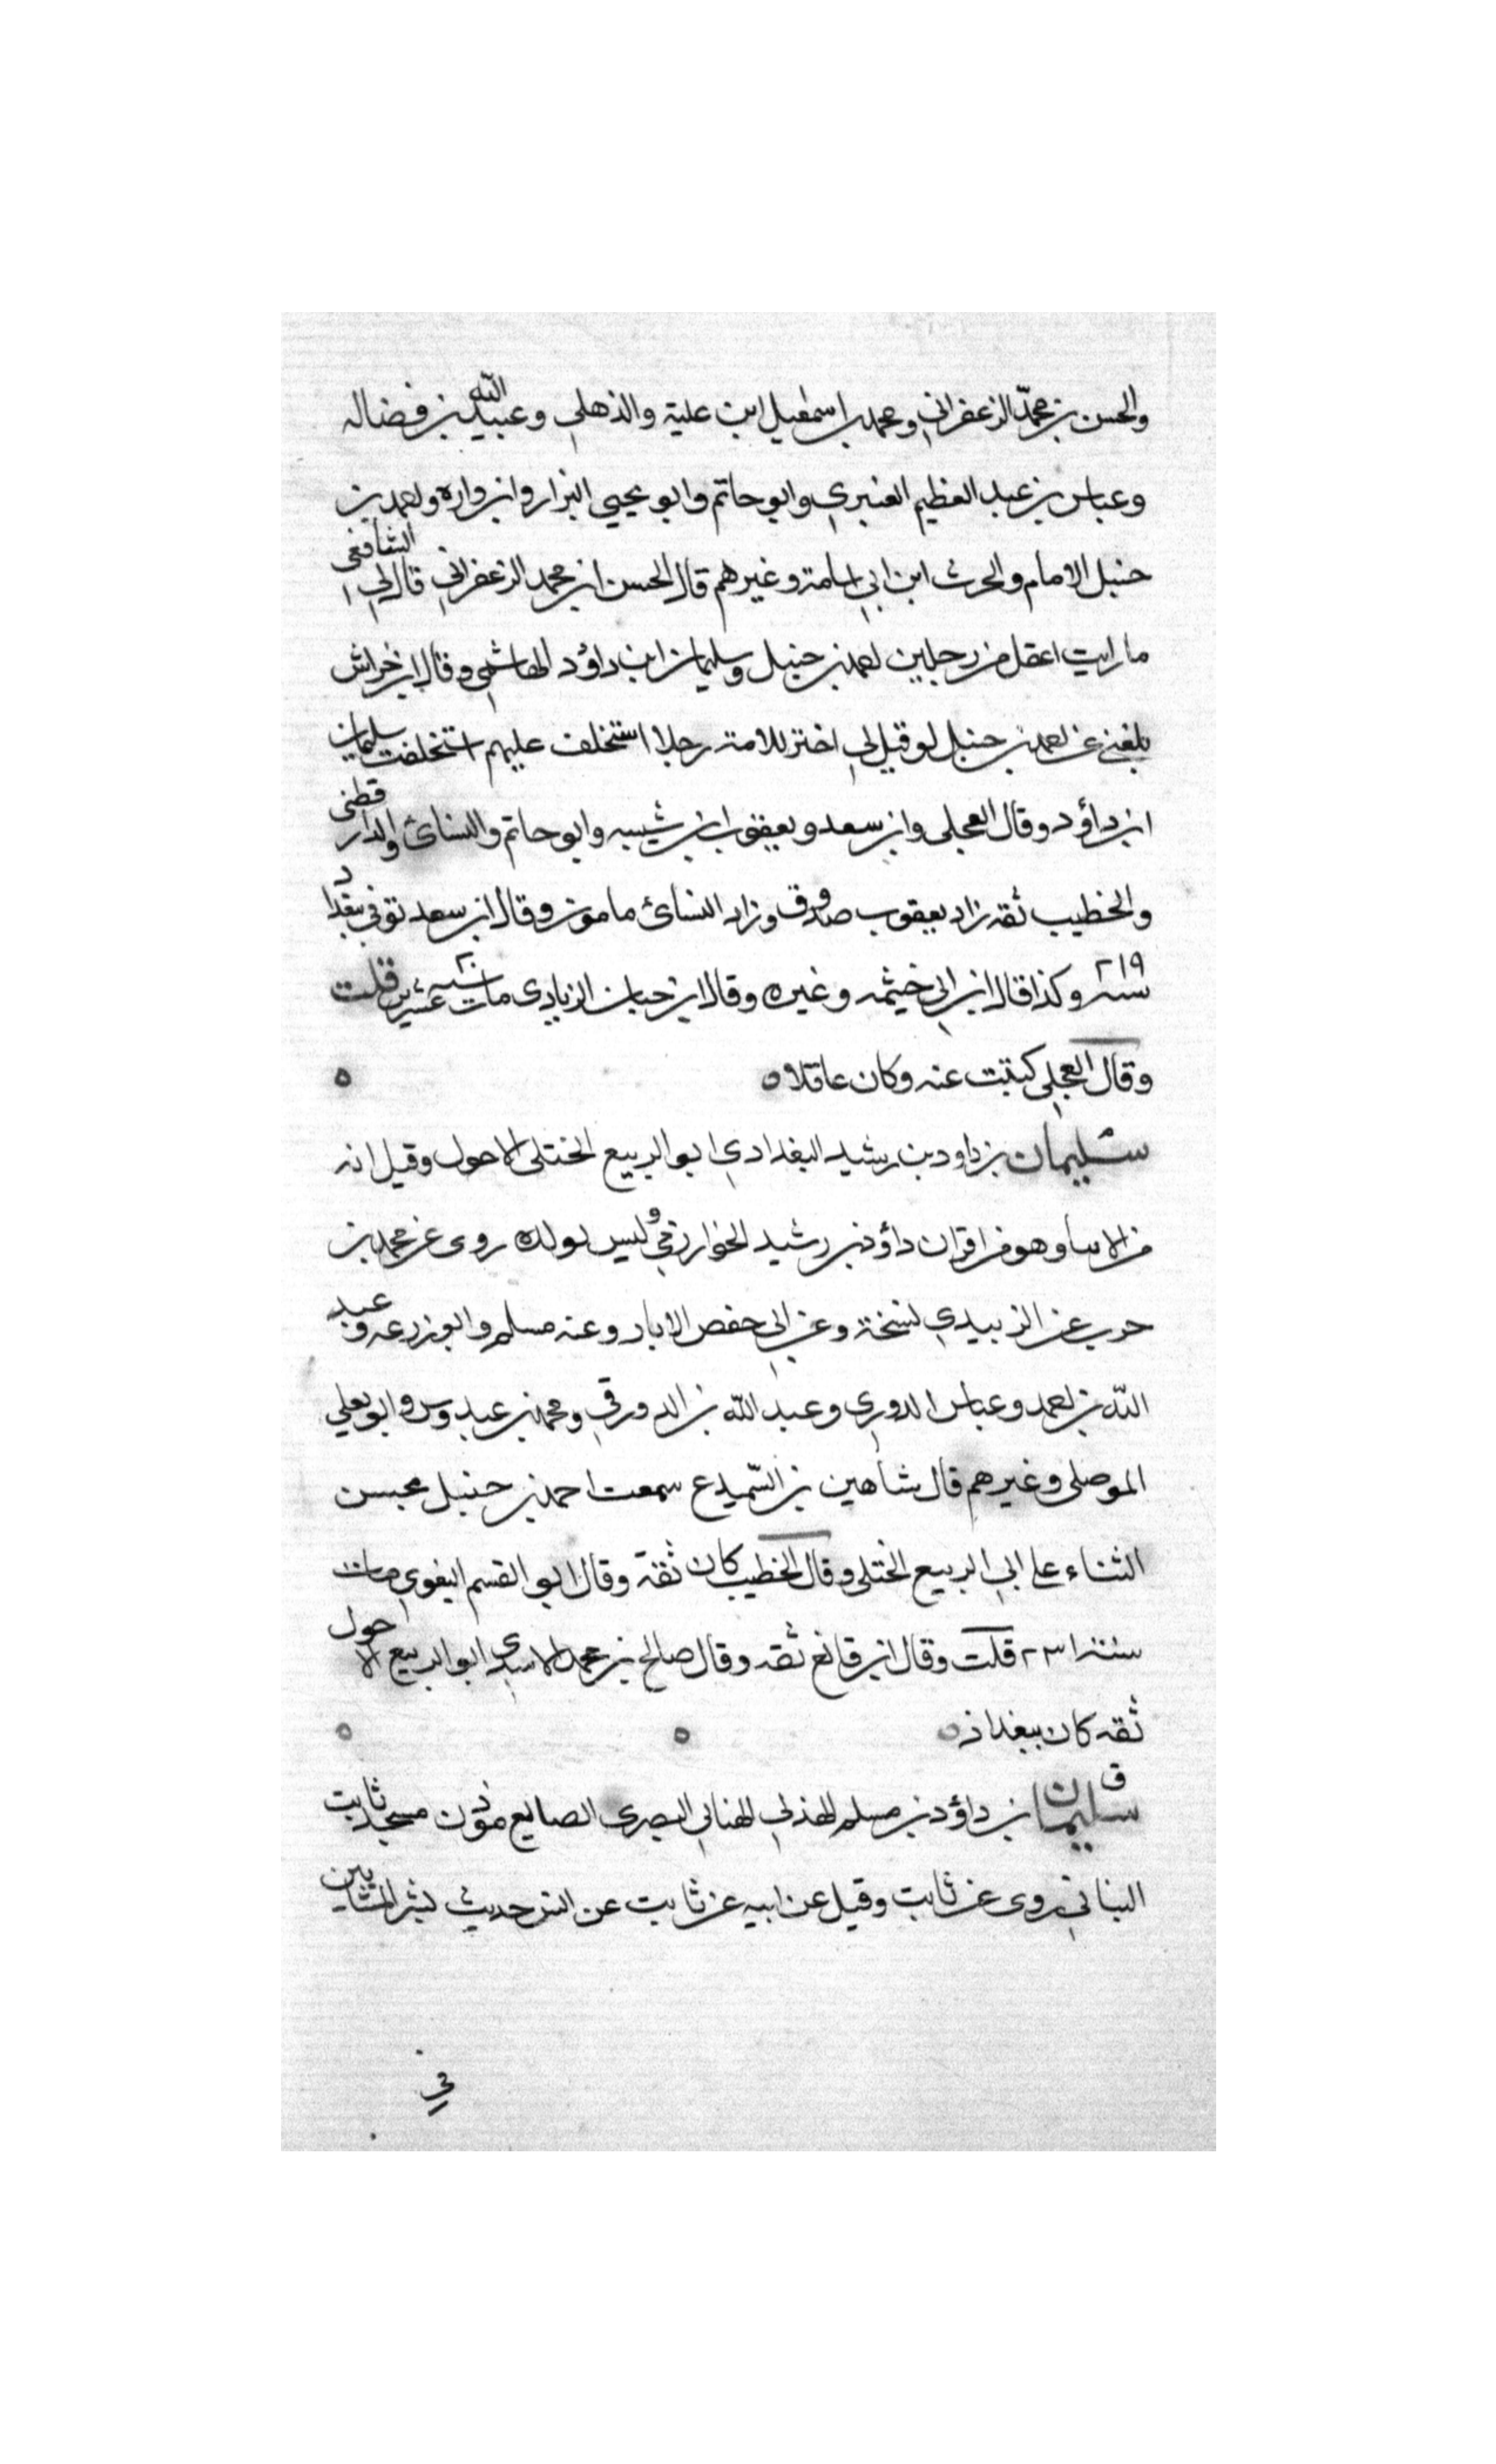 والحسن بن محمد الزعفراني ومحمد بن اسمعيل ابن علية والذهلي وعبيد الله بن فضاله
وعباس بن عبد العظيم العنبري وابو حاتم وابو يحيى البزار وابن واره واحمد بن
حنبل الامام والحرث ابن ابي اسامة وغيرهم قال الحسن ابن محمد الزعفراني قال لي الشافعي
ما رايت اعقل من رجلين احمد بن حنبل وسليمان ابن داؤد الهاشمي وقال ابن خراش
بلغني عن احمد بن حنبل لو قيل لي اختر للامة رجلا استخلف عليهم استخلفت سليمان
ابن داؤد وقال العجلي وابن سعد ويعقوب ابن شيبه وابو حاتم والنسائ والدارقطني
والخطيب ثقه زاد يعقوب صدوق وزاد النسائ مامون وقال ابن سعد توفي ببغداد
سنه ٢١٩ وكذا قال ابن ابي خيثمه وغيره وقال ابن حبان الزيادي مات سنه عشرين قلت
وقال العجلي كتبت عنه وكان عاقلا ه ه
سليمان بن داود بن رشيد البغدادي ابو الربيع الختلي الاحول وقيل انه
من الابنا وهو من اقران داؤد بن رشيد الخوارزمي وليس بولده روى عن محمد بن
حرب عن الزبيدي نسخة وعن ابي حفص الابار وعنه مسلم وابو زرعه وعبد
الله بن احمد وعباس الدوري وعبد الله بن الدورقي ومحمد بن عبدوس وابو يعلي
الموصلي وغيرهم قال شاهين بن السميدع سمعت احمد بن حنبل يحسن
الثناء علي ابي الربيع الختلي وقال الخطيب كان ثقة وقال ابو القسم البغوي مات
سنة ٢٣١ قلت وقال ابن قانع ثقه وقال صالح بن محمد الاسدي ابو الربيع الاحول
ثقه كان ببغداذ ه ه ه
ق سليمان بن داؤد بن مسلم الهذلي الهنائي البصري الصايغ موذن مسجد ثابت
البناني روى عن ثابت وقيل عن ابيه عن ثابت عن انس حديث بشر المشايين
في